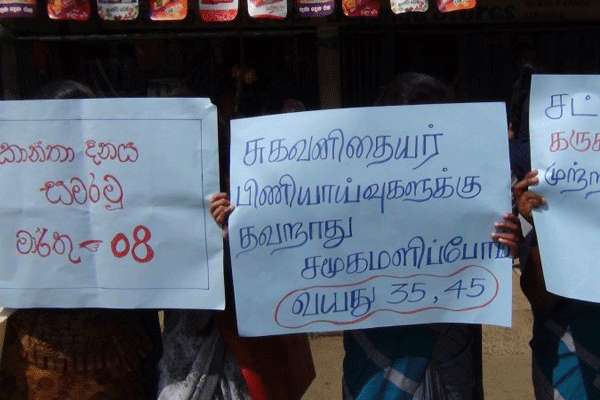 කාන්තා දිනය
සමරමු
මාර්තු - 08
சுகவனிதையர்
பிணியாய்வுகளுக்கு
தவறாது
சமூகமளிப்போம்
வயது 35, 45
சட்
கருக
முற்றா